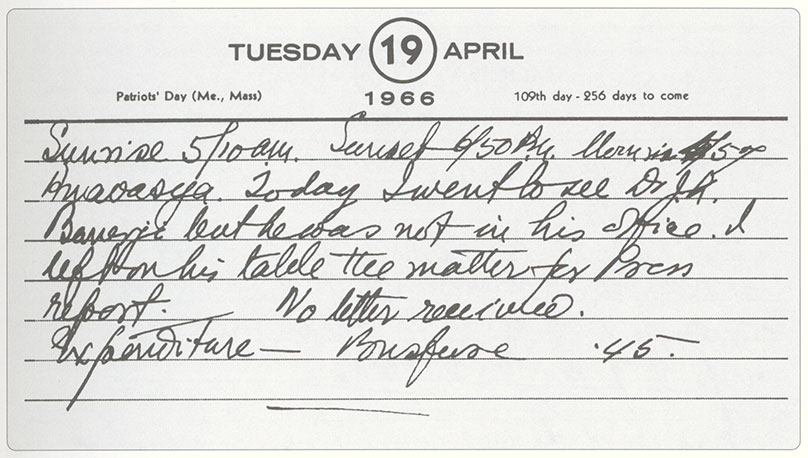 TUESDAY 19 APRIL
Patriots' Day (Me., Mass) 1966 109th day - 256 days to come
Sunrise 5/10 a.m. Sunset 6/50 P.M. Moonrise
Amavasya. Today I went to see Dr J.F.
Banerji but he was not in his office. I
left on his table the matter for Press
report. No letter received.
Expenditure — Busfare .45.